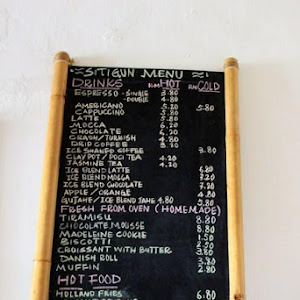 SITIGUN MENU
DRINKS RM HOT RM COLD
ESPRESSO - SINGLE 3.80
- DOUBLE 4.80
AMERICANO 5.20 5.80
CAPPUCCINO 5.80
LATTE 5.80
MOCCA 6.20
CHOCOLATE 6.20
DRIP COFFEE
ICE SHAKED COFFEE 3.80
CLAY POT / POCI TEA 4.20
JASMINE TEA 4.20
ICE BLEND LATTE 6.80
ICE BLEND MOCCA 7.20
ICE BLEND CHOCOLATE 7.20
APPLE / ORANGE 4.80
ICE BLEND 4.80 5.80
FRESH FROM OVEN (HOMEMADE)
TIRAMISU 8.80
CHOCOLATE MOUSSE 8.80
MADELEINE COOKIE 1.50
BISCOTTI 2.50
CROISSANT WITH BUTTER 3.80
DANISH ROLL 3.80
MUFFIN 2.80
HOT FOOD
HOLLAND FRIES 6.80